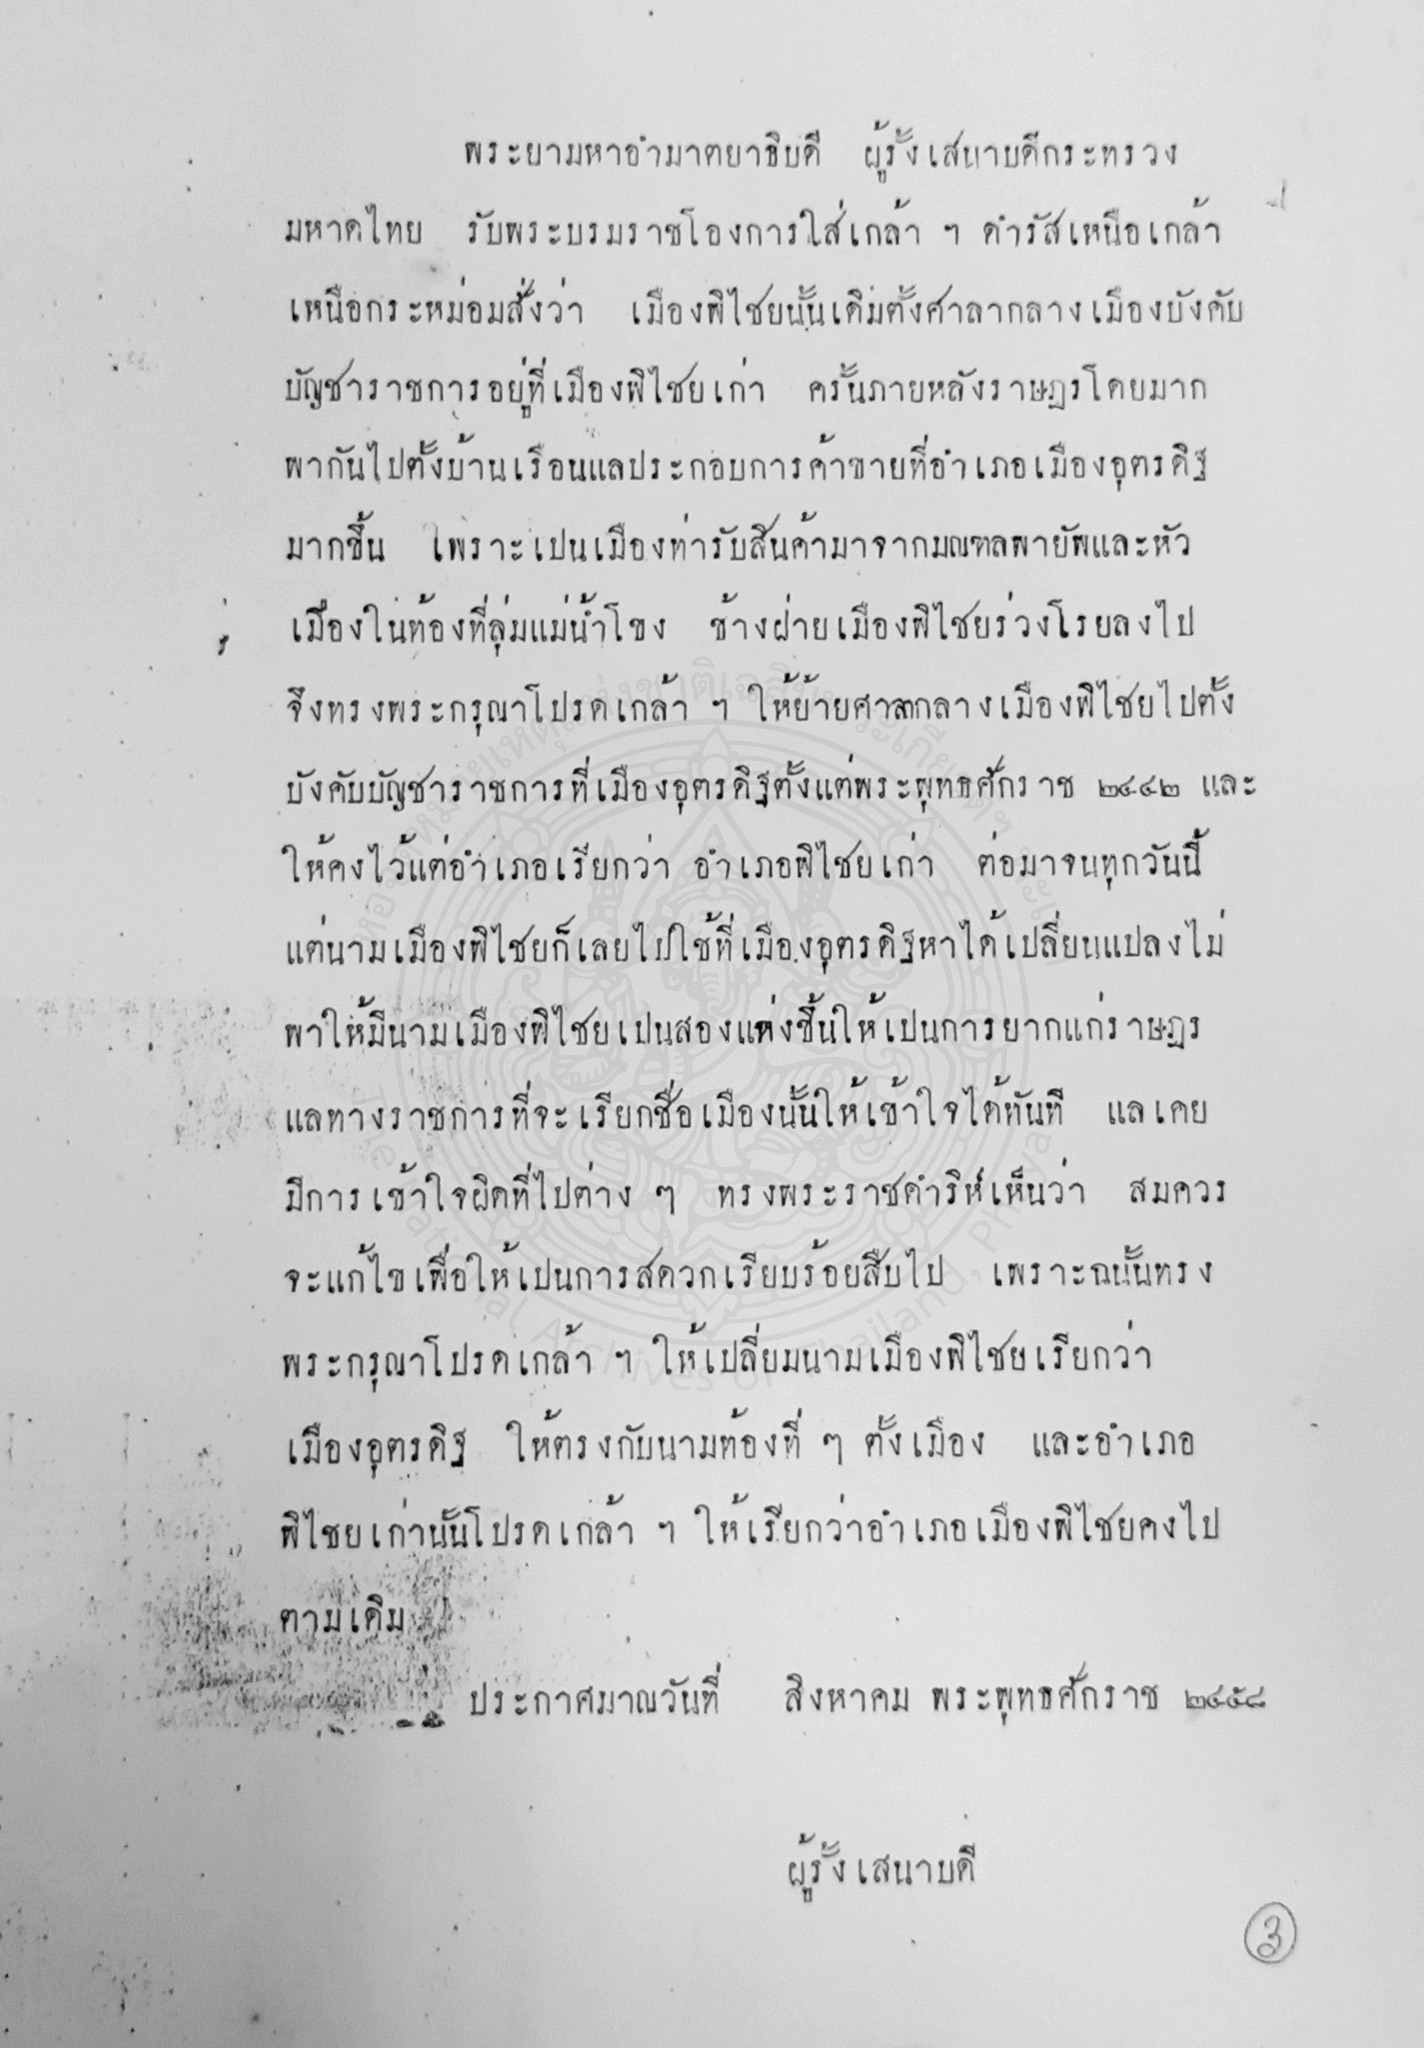 พระยามหาอำมาตยาธิบดี ผู้รั้งเสนาบดีกระทรวง
มหาดไทย รับพระบรมราชโองการใส่เกล้า ฯ ดำรัสเหนือเกล้า
เหนือกระหม่อมสั่งว่า เมืองพิไชยนั้นเดิมตั้งศาลากลางเมืองบังคับ
บัญชาราชการอยู่ที่เมืองพิไชยเก่า ครั้นภายหลังราษฎรโดยมาก
พากันไปตั้งบ้านเรือนแลประกอบการค้าขายที่อำเภอเมืองอุตรดิฐ
มากขึ้น เพราะเปนเมืองท่ารับสินค้ามาจากมณฑลพายัพและหัว
เมืองในท้องที่ลุ่มแม่น้ำโขง ข้างฝ่ายเมืองพิไชยร่วงโรยลงไป
จึงทรงพระกรุณาโปรดเกล้า ฯ ให้ย้ายศาลากลางเมืองพิไชยไปตั้ง
บังคับบัญชาราชการที่เมืองอุตรดิฐตั้งแต่พระพุทธศักราช ๒๔๔๒ และ
ให้คงไว้แต่อำเภอเรียกว่า อำเภอพิไชยเก่า ต่อมาจนทุกวันนี้
แต่นามเมืองพิไชยก็เลยไปใช้ที่เมืองอุตรดิฐหาได้เปลี่ยนแปลงไม่
พาให้มีนามเมืองพิไชยเปนสองแห่งขึ้นให้เปนการยากแก่ราษฎร
แลทางราชการที่จะเรียกชื่อเมืองนั้นให้เข้าใจได้ทันที แลเคย
มีการเข้าใจผิดที่ไปต่าง ๆ ทรงพระราชดำริห์เห็นว่า สมควร
จะแก้ไขเพื่อให้เปนการสดวกเรียบร้อยสืบไป เพราะฉนั้นทรง
พระกรุณาโปรดเกล้า ฯ ให้เปลี่ยมนามเมืองพิไชยเรียกว่า
เมืองอุตรดิฐ ให้ตรงกับนามท้องที่ ๆ ตั้งเมือง และอำเภอ
พิไชยเก่านั้นโปรดเกล้า ฯ ให้เรียกว่าอำเภอเมืองพิไชยคงไป
ตามเดิม
ประกาศมาณวันที่ สิงหาคม พระพุทธศักราช ๒๔๕๘
ผู้รั้งเสนาบดี
๓
หอจดหมายเหตุแห่งชาติเฉลิมพระเกียรติฯ พะเยา
The National Archives of Thailand, Phayao